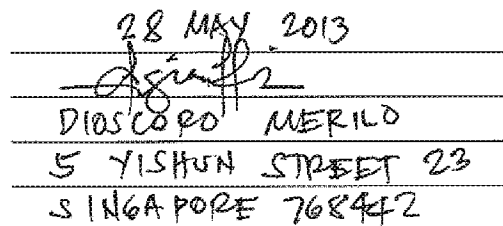 28 MAY 2013
DIOSCORO MERILO
5 YISHUN STREET 23
SINGAPORE 768442